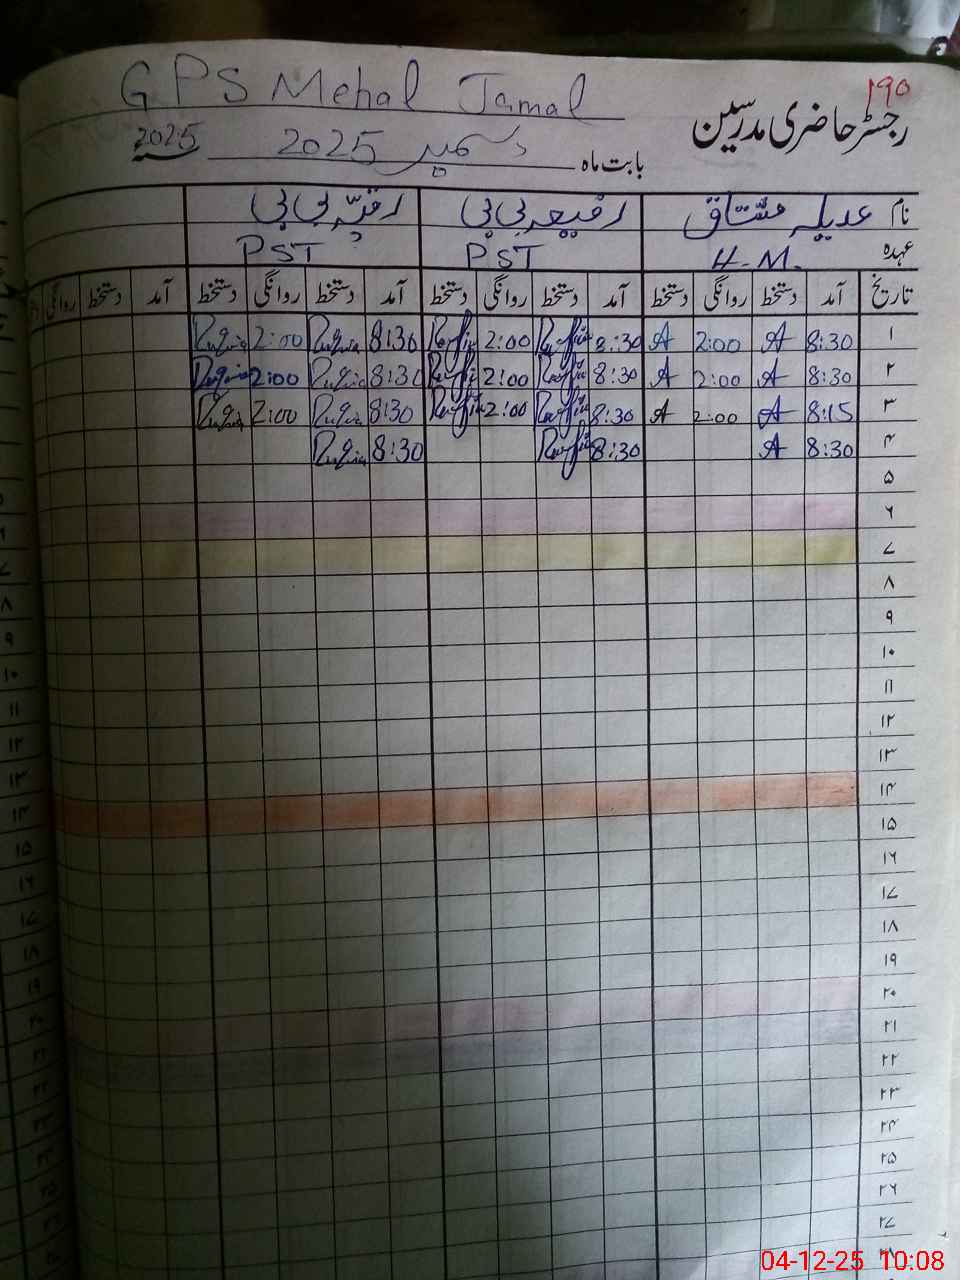 GPS Mehal Jamal
190
رجسٹر حاضری مدرسین
بابت ماہ دسمبر 2025 سنہ 2025
نام عدیلہ مشتاق رفیعہ بی بی رقیّہ بی بی
عہدہ H.M. PST PST
تاریخ آمد دستخط روانگی دستخط آمد دستخط روانگی دستخط آمد دستخط روانگی دستخط آمد دستخط روانگی
۱ 8:30 A 2:00 A 8:30 Rafia 2:00 Rafia 8:30 Ruqia 2:00 Ruqia
۲ 8:30 A 2:00 A 8:30 Rafia 2:00 Rafia 8:30 Ruqia 2:00 Ruqia
۳ 8:15 A 2:00 A 8:30 Rafia 2:00 Rafia 8:30 Ruqia 2:00 Ruqia
۴ 8:30 A 8:30 Rafia 8:30 Ruqia
۵
۶
۷
۸
۹
۱۰
۱۱
۱۲
۱۳
۱۴
۱۵
۱۶
۱۷
۱۸
۱۹
۲۰
۲۱
۲۲
۲۳
۲۴
۲۵
۲۶
۲۷
۲۸
04-12-25 10:08